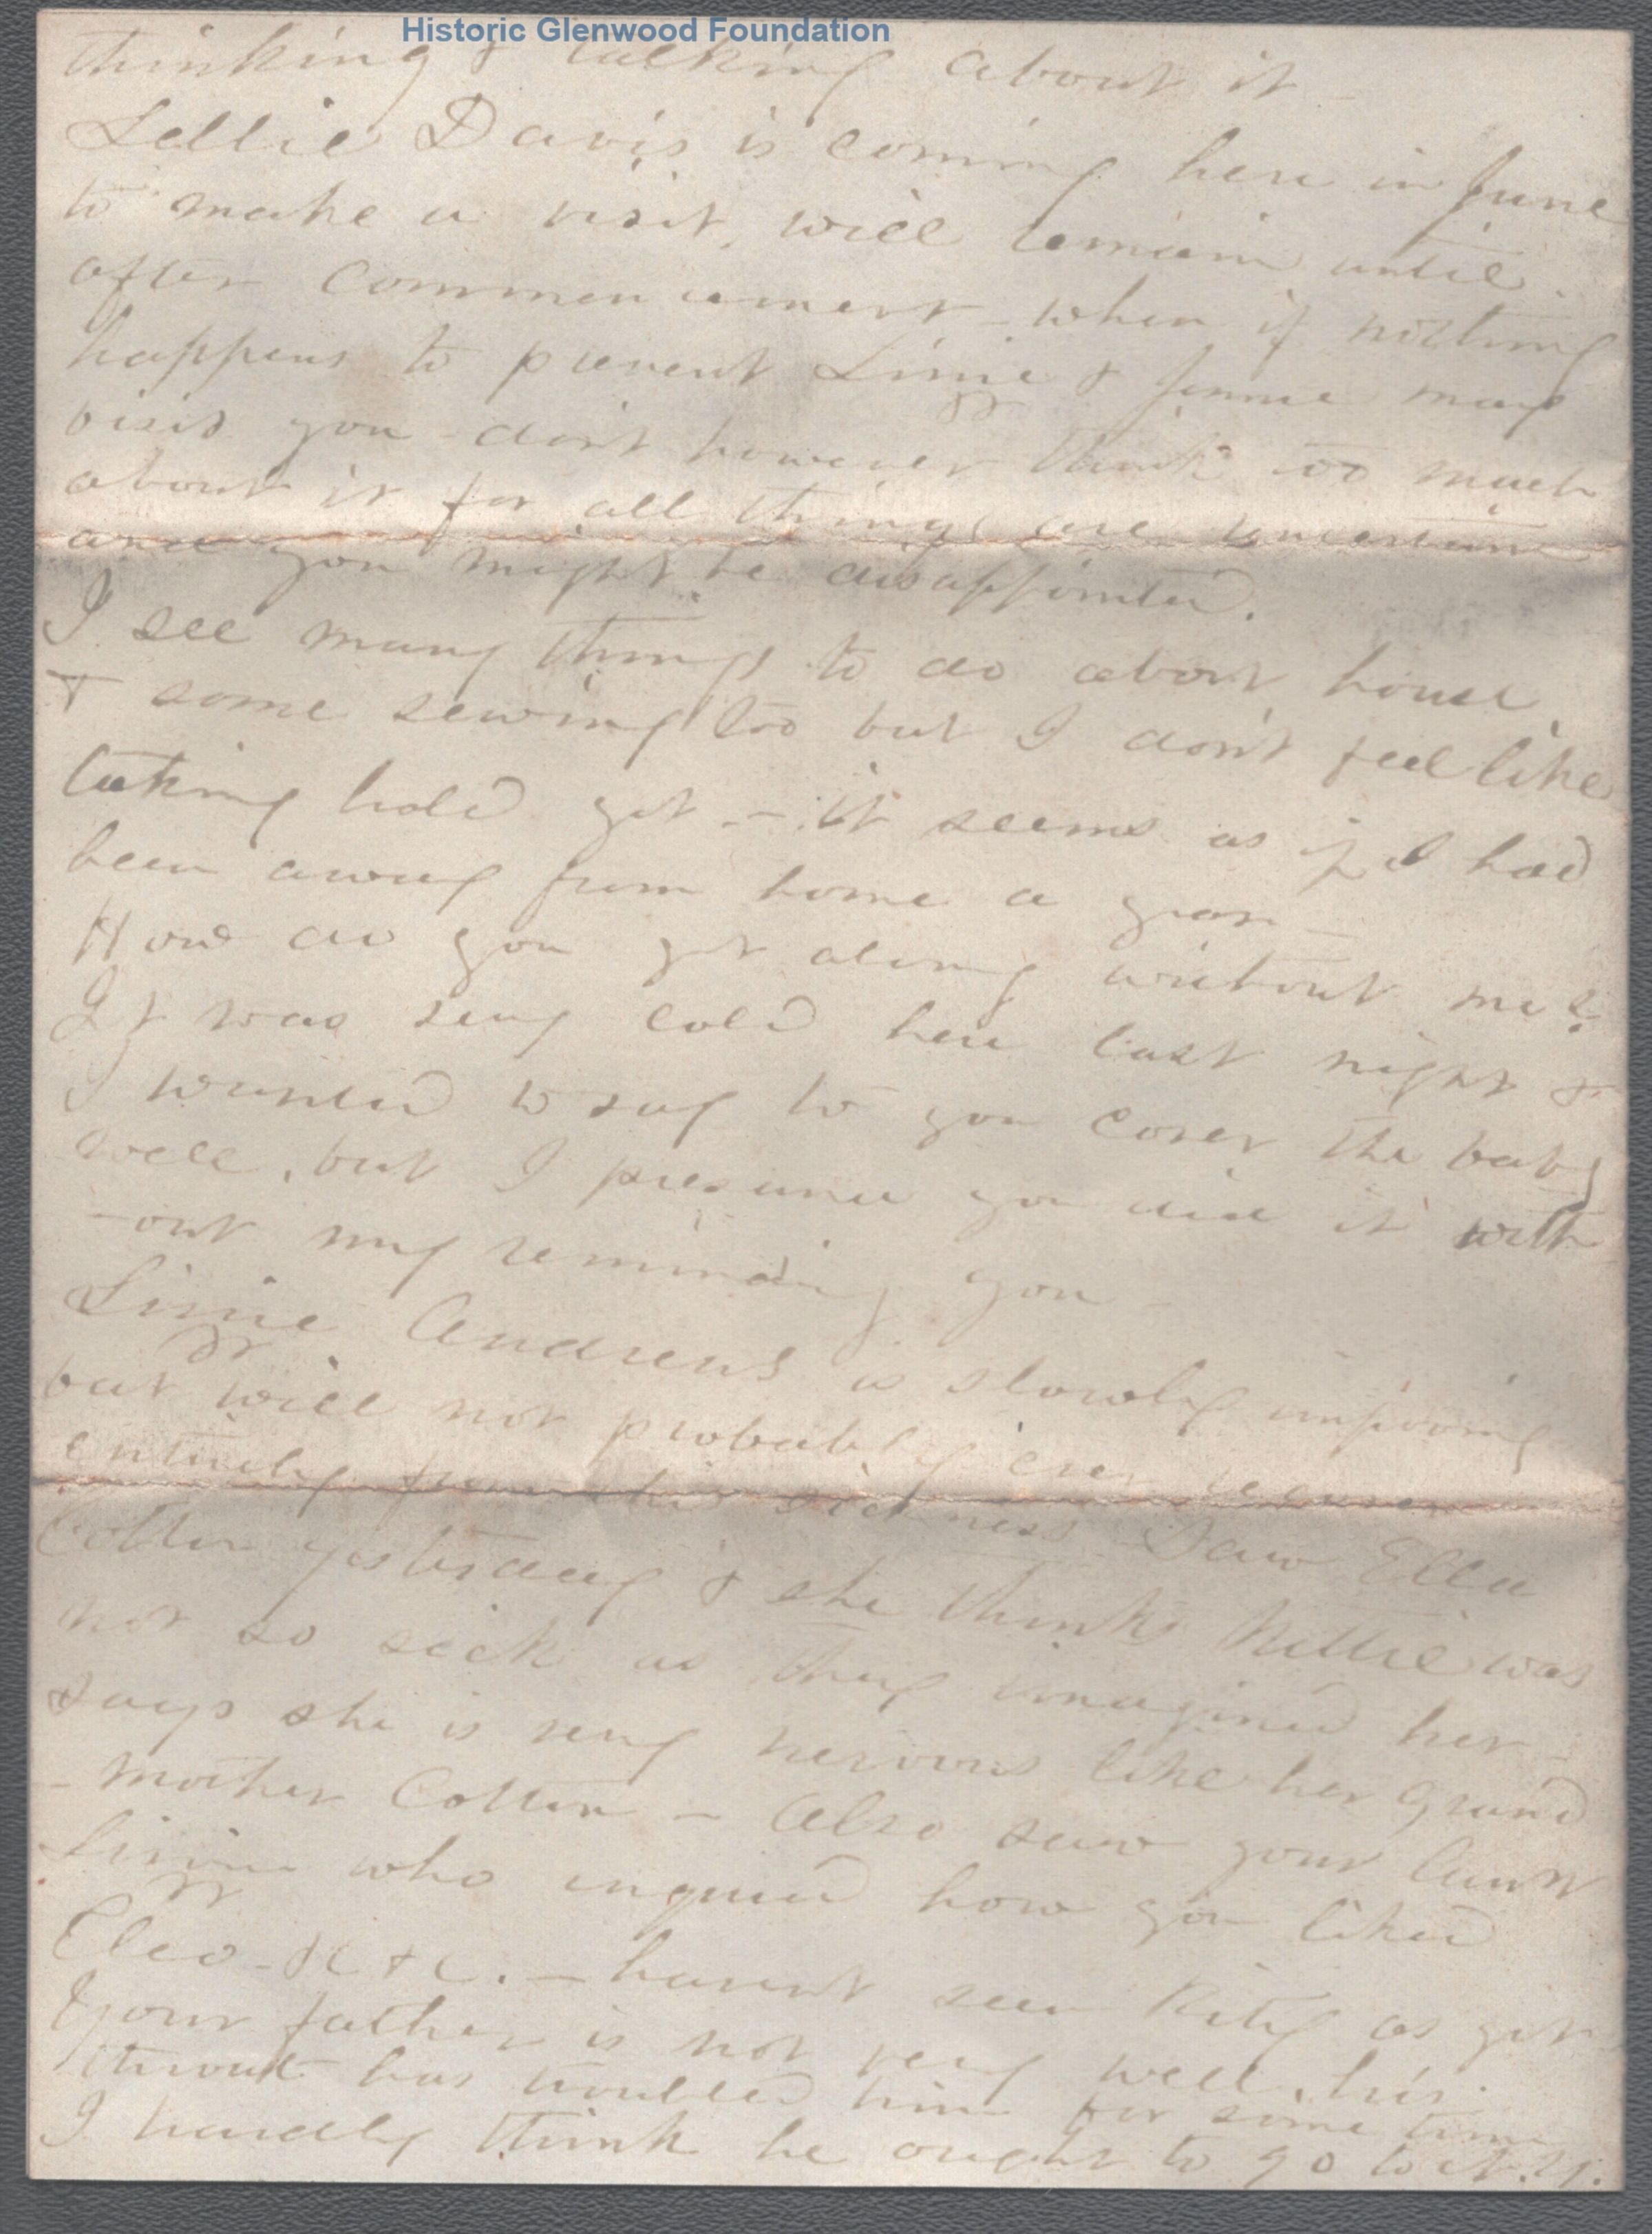 Historic Glenwood Foundation
thinking & talking about it -
Lellie Davis is coming here in June
to make a visit, will remain until
after Commencement - when if nothing
happens to prevent Lizzie & Jennie may
visit you - don't however think too much
about it for all things are uncertain
and you might be disappointed.
I see many things to do about house
& some sewing too but I don't feel like
taking hold yet - it seems as if I had
been away from home a year -
How do you get along without me?
It was very cold here last night &
I wanted to say to you cover the baby
well, but I presume you did it with
-out my reminding you -
Lizzie Andrews is slowly improving
but will not probably ever recover
entirely from this sickness Saw Ella
Cotten yesterday & she thinks Nettie was
not so sick as they imagined her -
says she is very nervous like her grand
-mother Cotten - Also saw your Aunt
Lizzie who inquired how you liked
Eleo - &c &c. - havent seen Kity as yet
Your father is not very well, his
throat has troubled him for some time
I hardly think he ought to go to